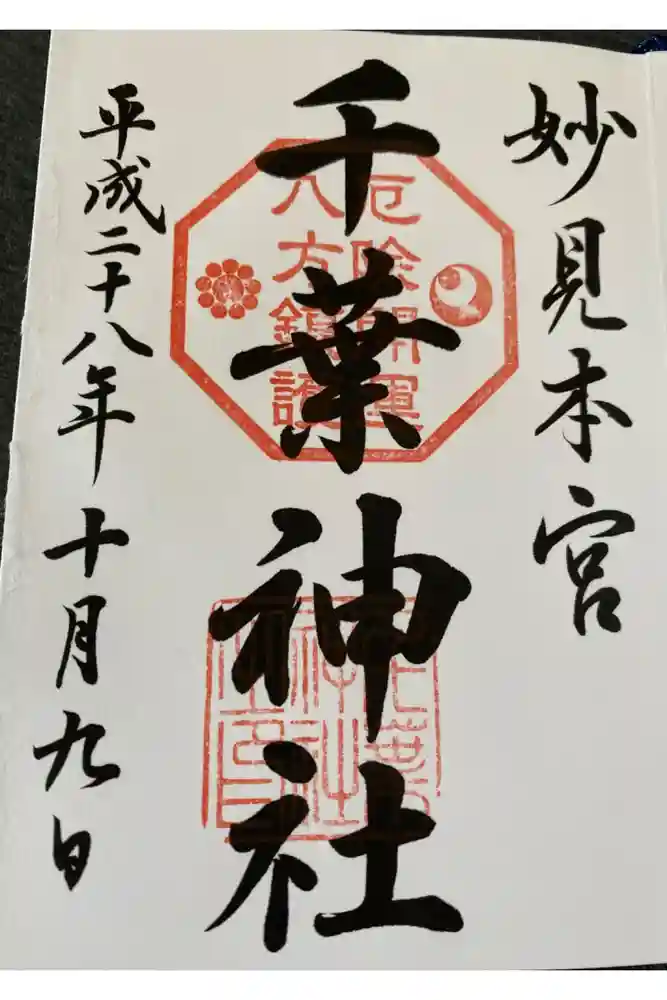 妙見本宮
千葉神社
平成二十八年十月九日
厄除開運
八方鎮護